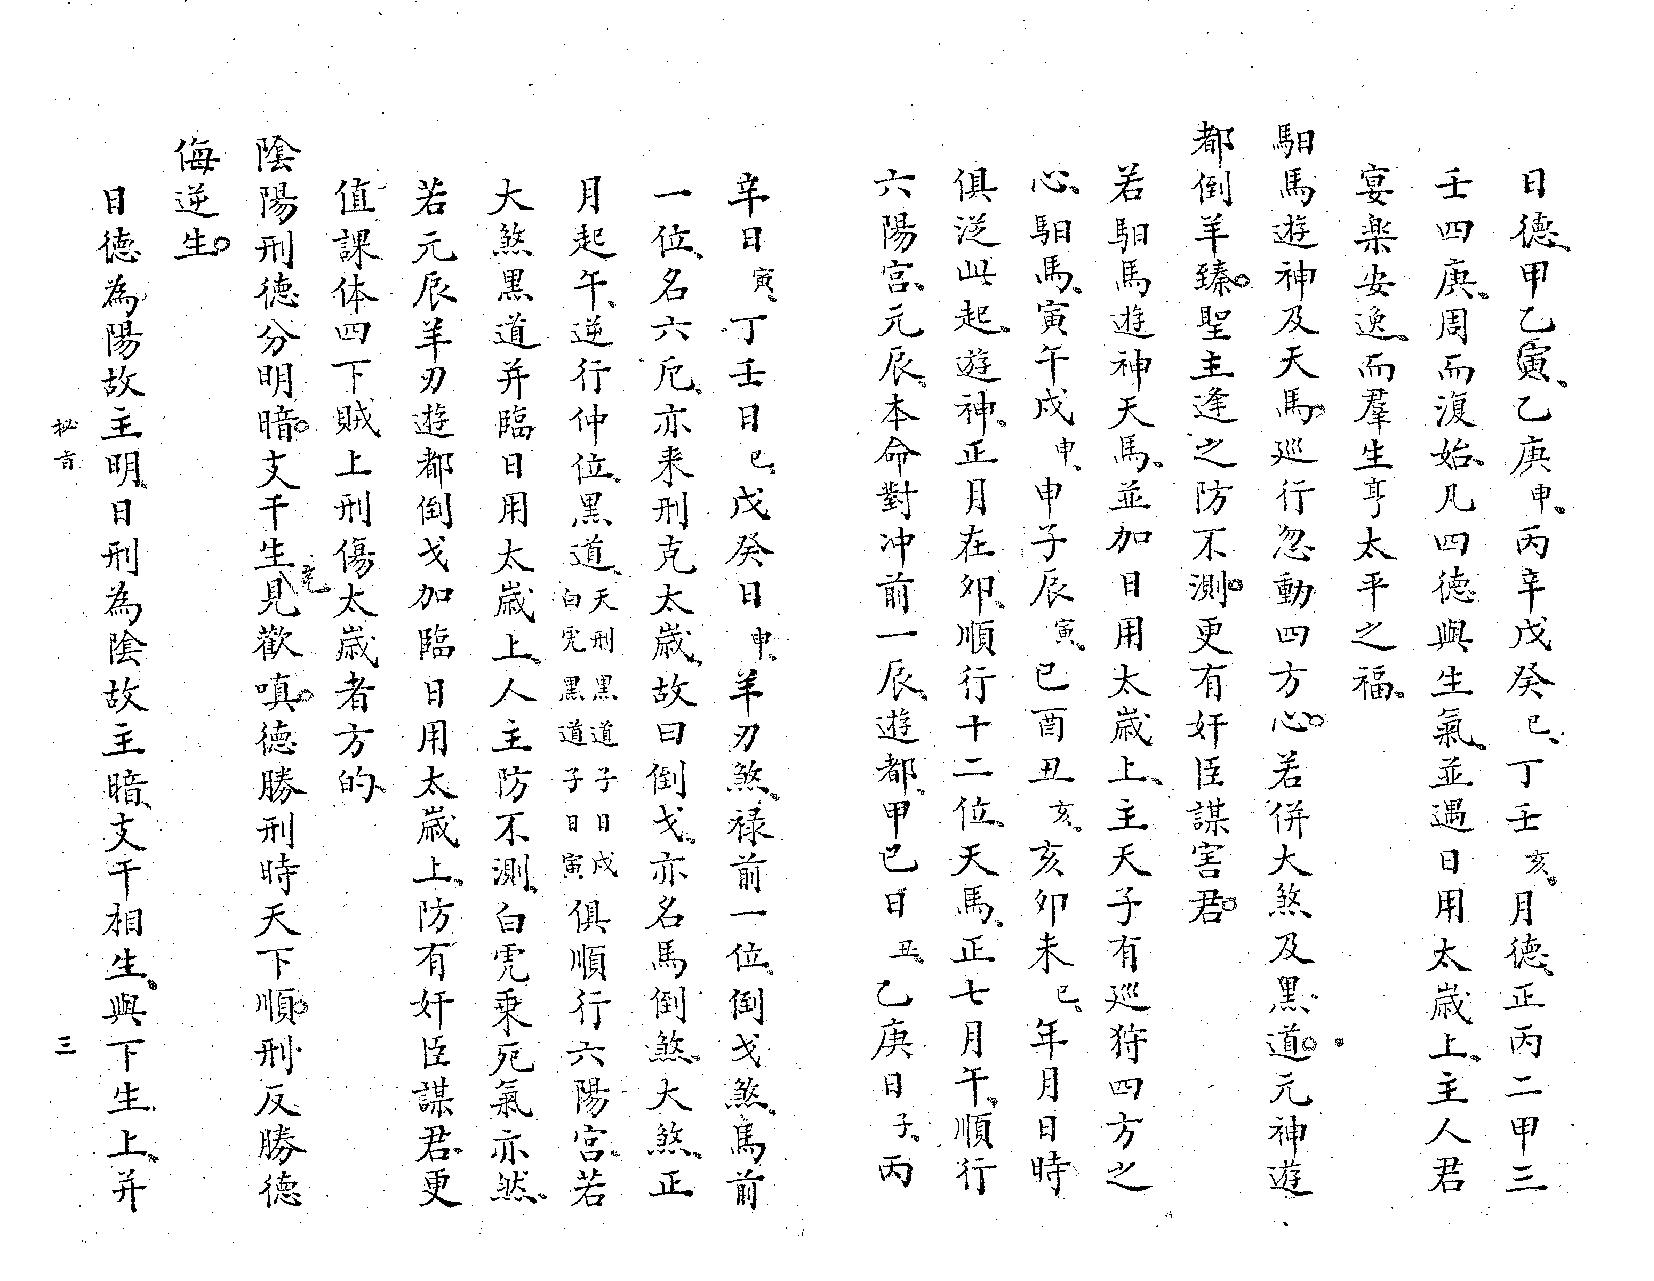 日德、甲乙寅、乙庚申、丙辛戊癸巳、丁壬亥。月德、正丙二甲三
壬四庚、周而復始、凡四德與生氣、並遇日用太歲上、主人君
宴楽安逸、而羣生亨太平之福。
馹馬遊神及天馬。巡行忽動四方心。若併大煞及黑道。元神遊
都倒羊臻。聖主逢之防不測。更有奸臣謀害君。
若馹馬遊神天馬、並加日用太歲上、主天子有巡狩四方之
心、馹馬、寅午戌申、申子辰寅、巳酉丑亥、亥卯未巳、年月日時
俱泛此起、遊神、正月在卯、順行十二位、天馬、正七月午、順行
六陽宮、元辰、本命對冲前一辰、遊都、甲己日丑、乙庚日子、丙
辛日寅、丁壬日巳、戊癸日申、羊刃煞、禄前一位、倒戈煞、馬前
一位、名六厄、亦来刑克太歲、故曰倒戈、亦名馬倒煞、大煞、正
月起午、逆行仲位、黑道、天刑黑道子日戌白虎黑道子日寅俱順行六陽宮、若
大煞黑道并臨日用太歲上、人主防不測、白虎乘死氣亦然、
若元辰羊刃遊都倒戈加臨日用太歲上、防有奸臣謀君、更
值課体四下賊上刑傷太歲者方的、
陰陽刑德分明暗。支干生克見歡嗔。德勝刑時天下順。刑反勝德
侮逆生。
日德為陽故主明、日刑為陰故主暗、支干相生、與下生上、并
秘旨 三